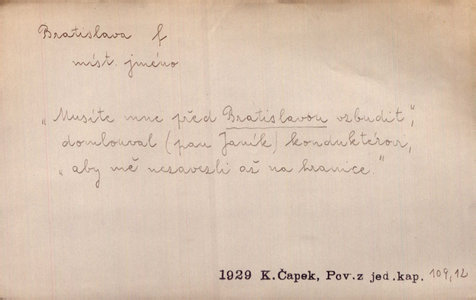 Bratislava f
míst. jméno
„Musíte mne před Bratislavou vzbudit“,
domlouval (pan Janík) konduktérovi,
„aby mě nezavezli až na hranice.“
1929 K.Čapek, Pov.z jed.kap. 109,12